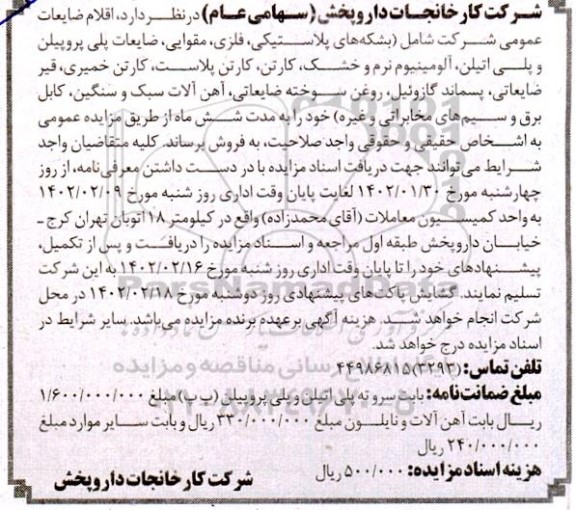 شرکت کارخانجات داروپخش (سهامی عام) در نظر دارد، اقلام ضایعات
عمومی شرکت شامل (بشکه‌های پلاستیکی، فلزی، مقوایی، ضایعات پلی پروپیلن
و پلی اتیلن، آلومینیوم نرم و خشک، کارتن، کارتن پلاست، کارتن خمیری، قیر
ضایعاتی، پسماند گازوئیل، روغن سوخته ضایعاتی، آهن آلات سبک و سنگین، کابل
برق و سیم‌های مخابراتی و غیره) خود را به مدت شش ماه از طریق مزایده عمومی
به اشخاص حقیقی و حقوقی واجد صلاحیت، به فروش برساند. کلیه متقاضیان واجد
شرایط می‌توانند جهت دریافت اسناد مزایده با در دست داشتن معرفی‌نامه، از روز
چهارشنبه مورخ ۱۴۰۲/۰۱/۳۰ لغایت پایان وقت اداری روز شنبه مورخ ۱۴۰۲/۰۲/۰۹
به واحد کمیسیون معاملات (آقای محمدزاده) واقع در کیلومتر ۱۸ اتوبان تهران کرج -
خیابان داروپخش طبقه اول مراجعه و اسناد مزایده را دریافت و پس از تکمیل،
پیشنهادهای خود را تا پایان وقت اداری روز شنبه مورخ ۱۴۰۲/۰۲/۱۶ به این شرکت
تسلیم نمایند. گشایش پاکت‌های پیشنهادی روز دوشنبه مورخ ۱۴۰۲/۰۲/۱۸ در محل
شرکت انجام خواهد شد. هزینه آگهی بر عهده برنده مزایده می‌باشد. سایر شرایط در
اسناد مزایده درج خواهد شد.
تلفن تماس: (۳۲۹۳) ۴۴۹۸۶۸۱۵
مبلغ ضمانت‌نامه: بابت سرو ته پلی اتیلن و پلی پروپیلن (پ پ) مبلغ ۱/۶۰۰/۰۰۰/۰۰۰
ریال بابت آهن آلات و نایلون مبلغ ۳۳۰/۰۰۰/۰۰۰ ریال و بابت سایر موارد مبلغ
۲۴۰/۰۰۰/۰۰۰ ریال
هزینه اسناد مزایده: ۵۰۰/۰۰۰ ریال
شرکت کارخانجات داروپخش
ParsNamadData